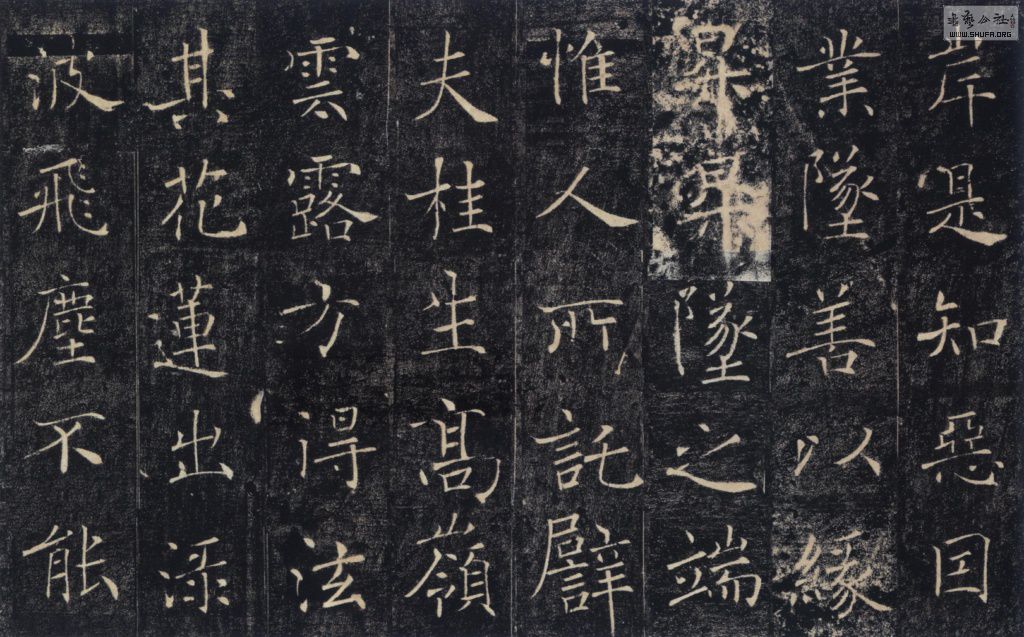 岸是知惡囙
業墜善以緣
昇昇墜之端
惟人所託譬
夫桂生髙嶺
雲露方得泫
其花蓮出淥
波飛塵不能
书艺公社
WWW.SHUFA.ORG